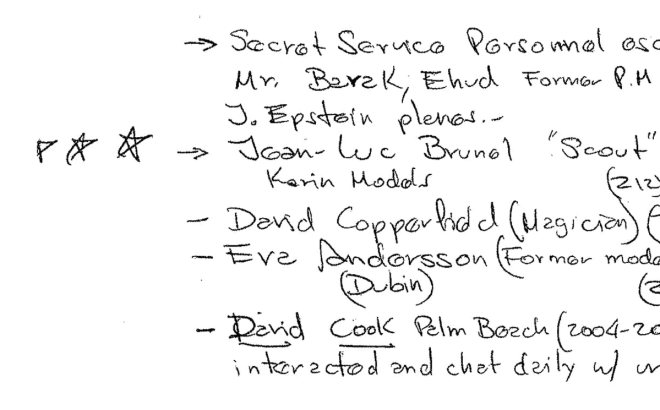 → Secret Service Personnel esc
Mr. Barak, Ehud Former P.M
J. Epstein planes.-
→ Jean-Luc Brunel "Scout"
Karin Models (212
- David Copperfield (Magician) (
- Eva Andersson (Former mode
(Dubin) (2
- David Cook Palm Beach (2004-20
interacted and chat daily w/